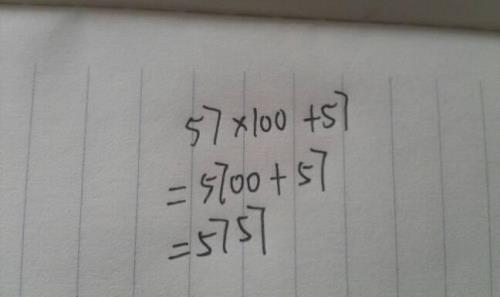 57×100+57
=5700+57
=5757